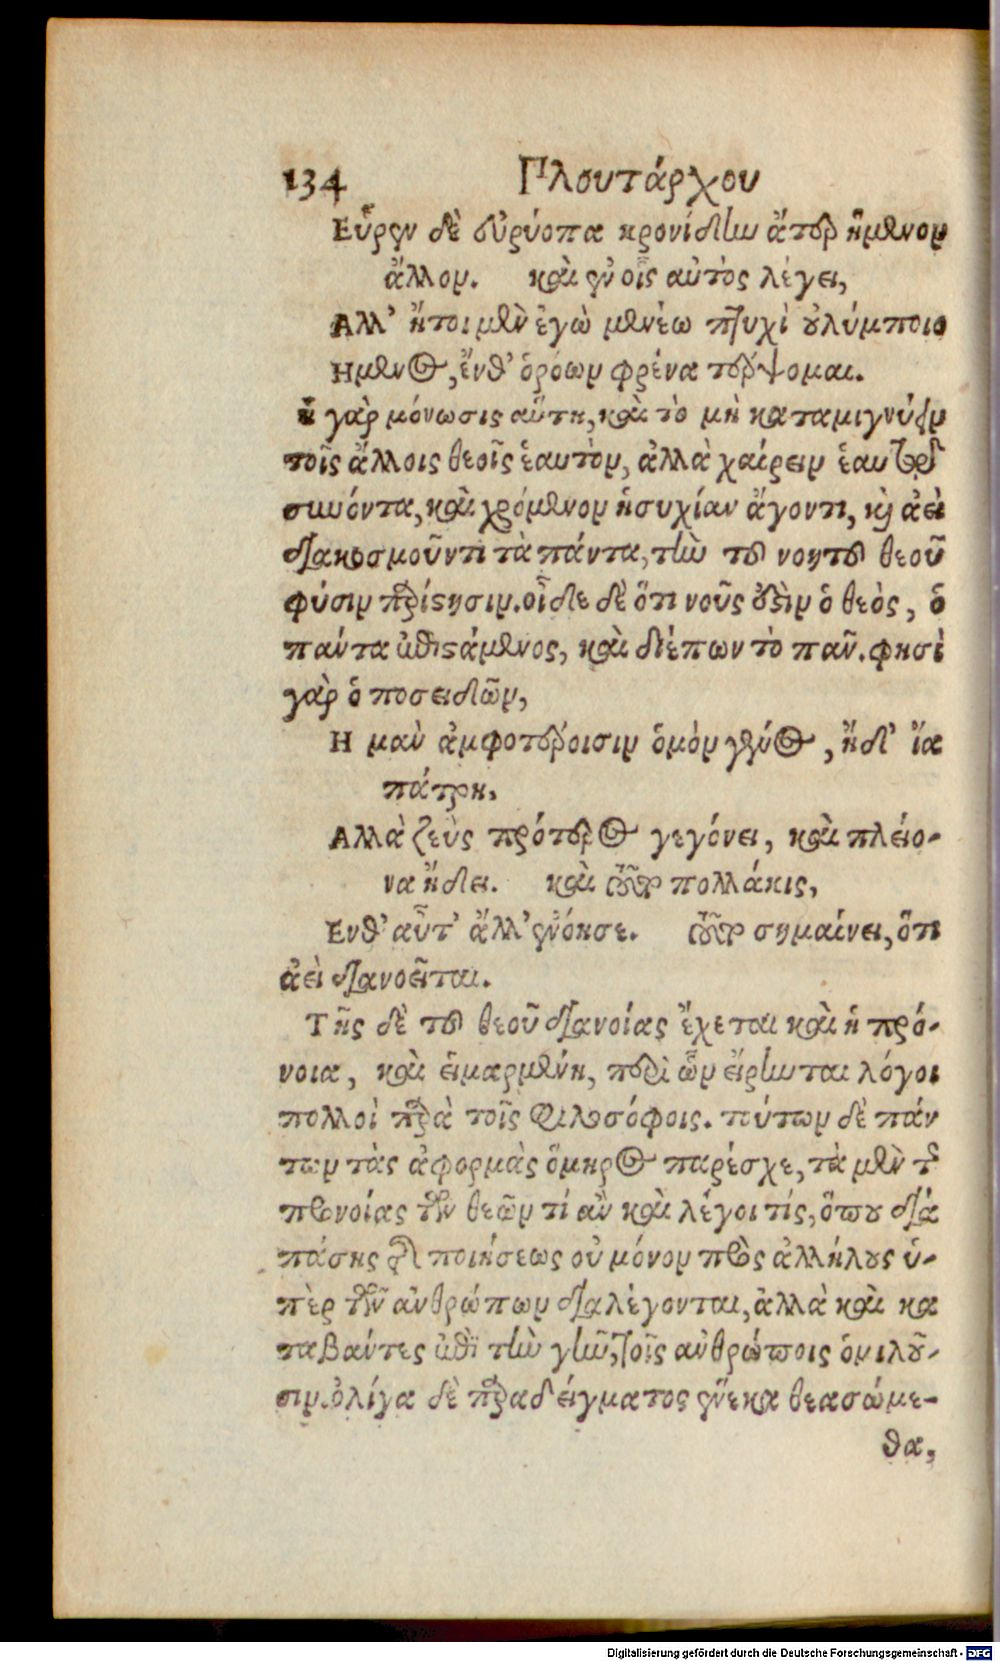 134 Πλουτάρχου
Εὗρεν δὲ εὐρύοπα κρονίδην ἄτερ ἥμενον
ἄλλον. καὶ ἐν οἷς αὐτὸς λέγει,
Αλλ' ἤτοι μὲν ἐγὼ μενέω πτυχὶ οὐλύμποιο
Ημενος, ἔνθ' ὁρόων φρένα τέρψομαι.
ἡ γὰρ μόνωσις αὕτη, καὶ τὸ μὴ καταμιγνύειν
τοῖς ἄλλοις θεοῖς ἑαυτὸν, ἀλλὰ χαίρειν ἑαυτῷ
συνόντα, καὶ χρόμενον ἡσυχίαν ἄγοντι, καὶ ἀεὶ
διακοσμοῦντι τὰ πάντα, τὴν τοῦ νοητοῦ θεοῦ
φύσιν παρίστησιν. οἶδε δὲ ὅτι νοῦς ἐστὶν ὁ θεὸς, ὁ
πάντα ἐπιστάμενος, καὶ διέπων τὸ πᾶν. φησὶ
γὰρ ὁ ποσειδῶν,
Η μὰν ἀμφοτέροισιν ὁμὸν γένος, ἠδ' ἴα
πάτρη,
Αλλὰ ζεὺς πρότερος γεγόνει, καὶ πλείο-
να ἤδει. καὶ τοῦτο πολλάκις,
Ενθ' αὖτ' ἄλλ' ἐνόησε. τοῦτο σημαίνει, ὅτι
ἀεὶ διανοεῖται.
Τῆς δὲ τοῦ θεοῦ διανοίας ἔχεται καὶ ἡ πρό-
νοια, καὶ εἱμαρμένη, περὶ ὧν εἴρηνται λόγοι
πολλοὶ παρὰ τοῖς φιλοσόφοις. τούτων δὲ πάν
των τὰς ἀφορμὰς ὅμηρος παρέσχε, τὰ μὲν τῆς
προνοίας τῶν θεῶν τί ἂν καὶ λέγοι τίς, ὅπου διὰ
πάσης τῆς ποιήσεως οὐ μόνον πρὸς ἀλλήλους ὑ-
πὲρ τῶν ἀνθρώπων διαλέγονται, ἀλλὰ καὶ κα
ταβάντες ἐπὶ τὴν γῆν, τοῖς ἀνθρώποις ὁμιλοῦ-
σιν. ὀλίγα δὲ παραδείγματος ἕνεκα θεασώμε-
θα,
Digitalisierung gefördert durch die Deutsche Forschungsgemeinschaft - DFG